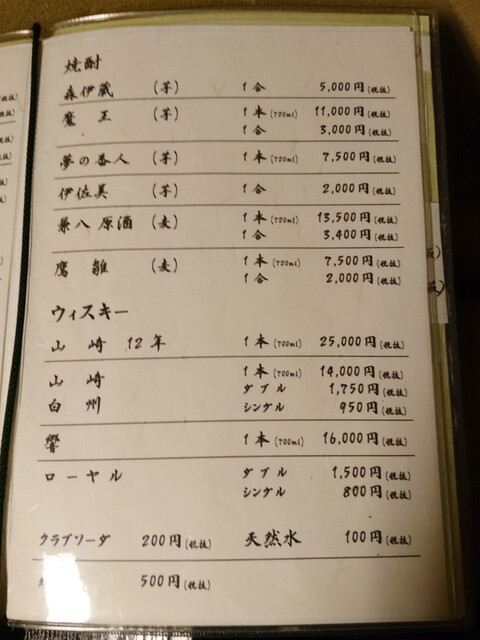 焼酎
森伊蔵 (芋) 1合 5,000円(税抜)
魔王 (芋) 1本(720ml) 11,000円(税抜)
1合 3,000円(税抜)
夢の番人 (芋) 1本(720ml) 7,500円(税抜)
伊佐美 (芋) 1合 2,000円(税抜)
兼八 原酒 (麦) 1本(720ml) 13,500円(税抜)
1合 3,400円(税抜)
鷹雛 (麦) 1本(720ml) 7,500円(税抜)
1合 2,000円(税抜)
ウィスキー
山崎 12年 1本(700ml) 25,000円(税抜)
山崎 1本(700ml) 14,000円(税抜)
ダブル 1,750円(税抜)
白州 シングル 950円(税抜)
響 1本(700ml) 16,000円(税抜)
ローヤル ダブル 1,500円(税抜)
シングル 800円(税抜)
クラブソーダ 200円(税抜) 天然水 100円(税抜)
500円(税抜)